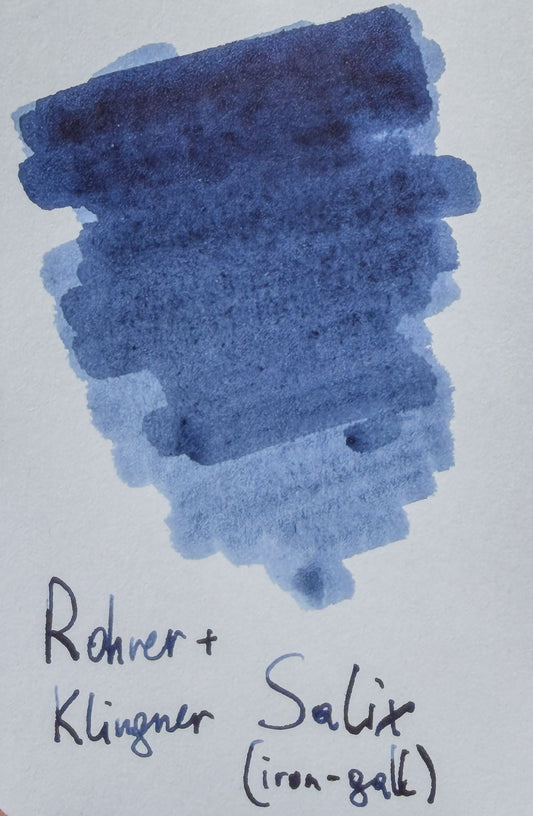 Rohrer +
Klingner Salix
(iron-gall)